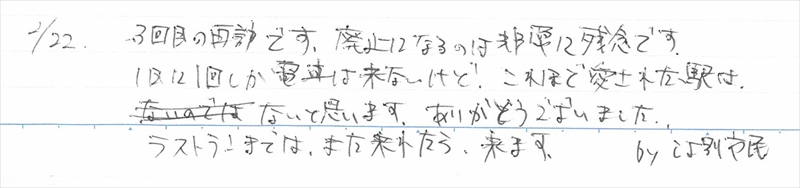 2/22. 3回目の再訪です。廃止になるのは非常に残念です。
1日に1回しか電車は来ないけど、これほど愛された駅は、
ないのでは ないと思います。ありがとうございました。
ラストランまでは、また来れたら、来ます。 by 江別市民